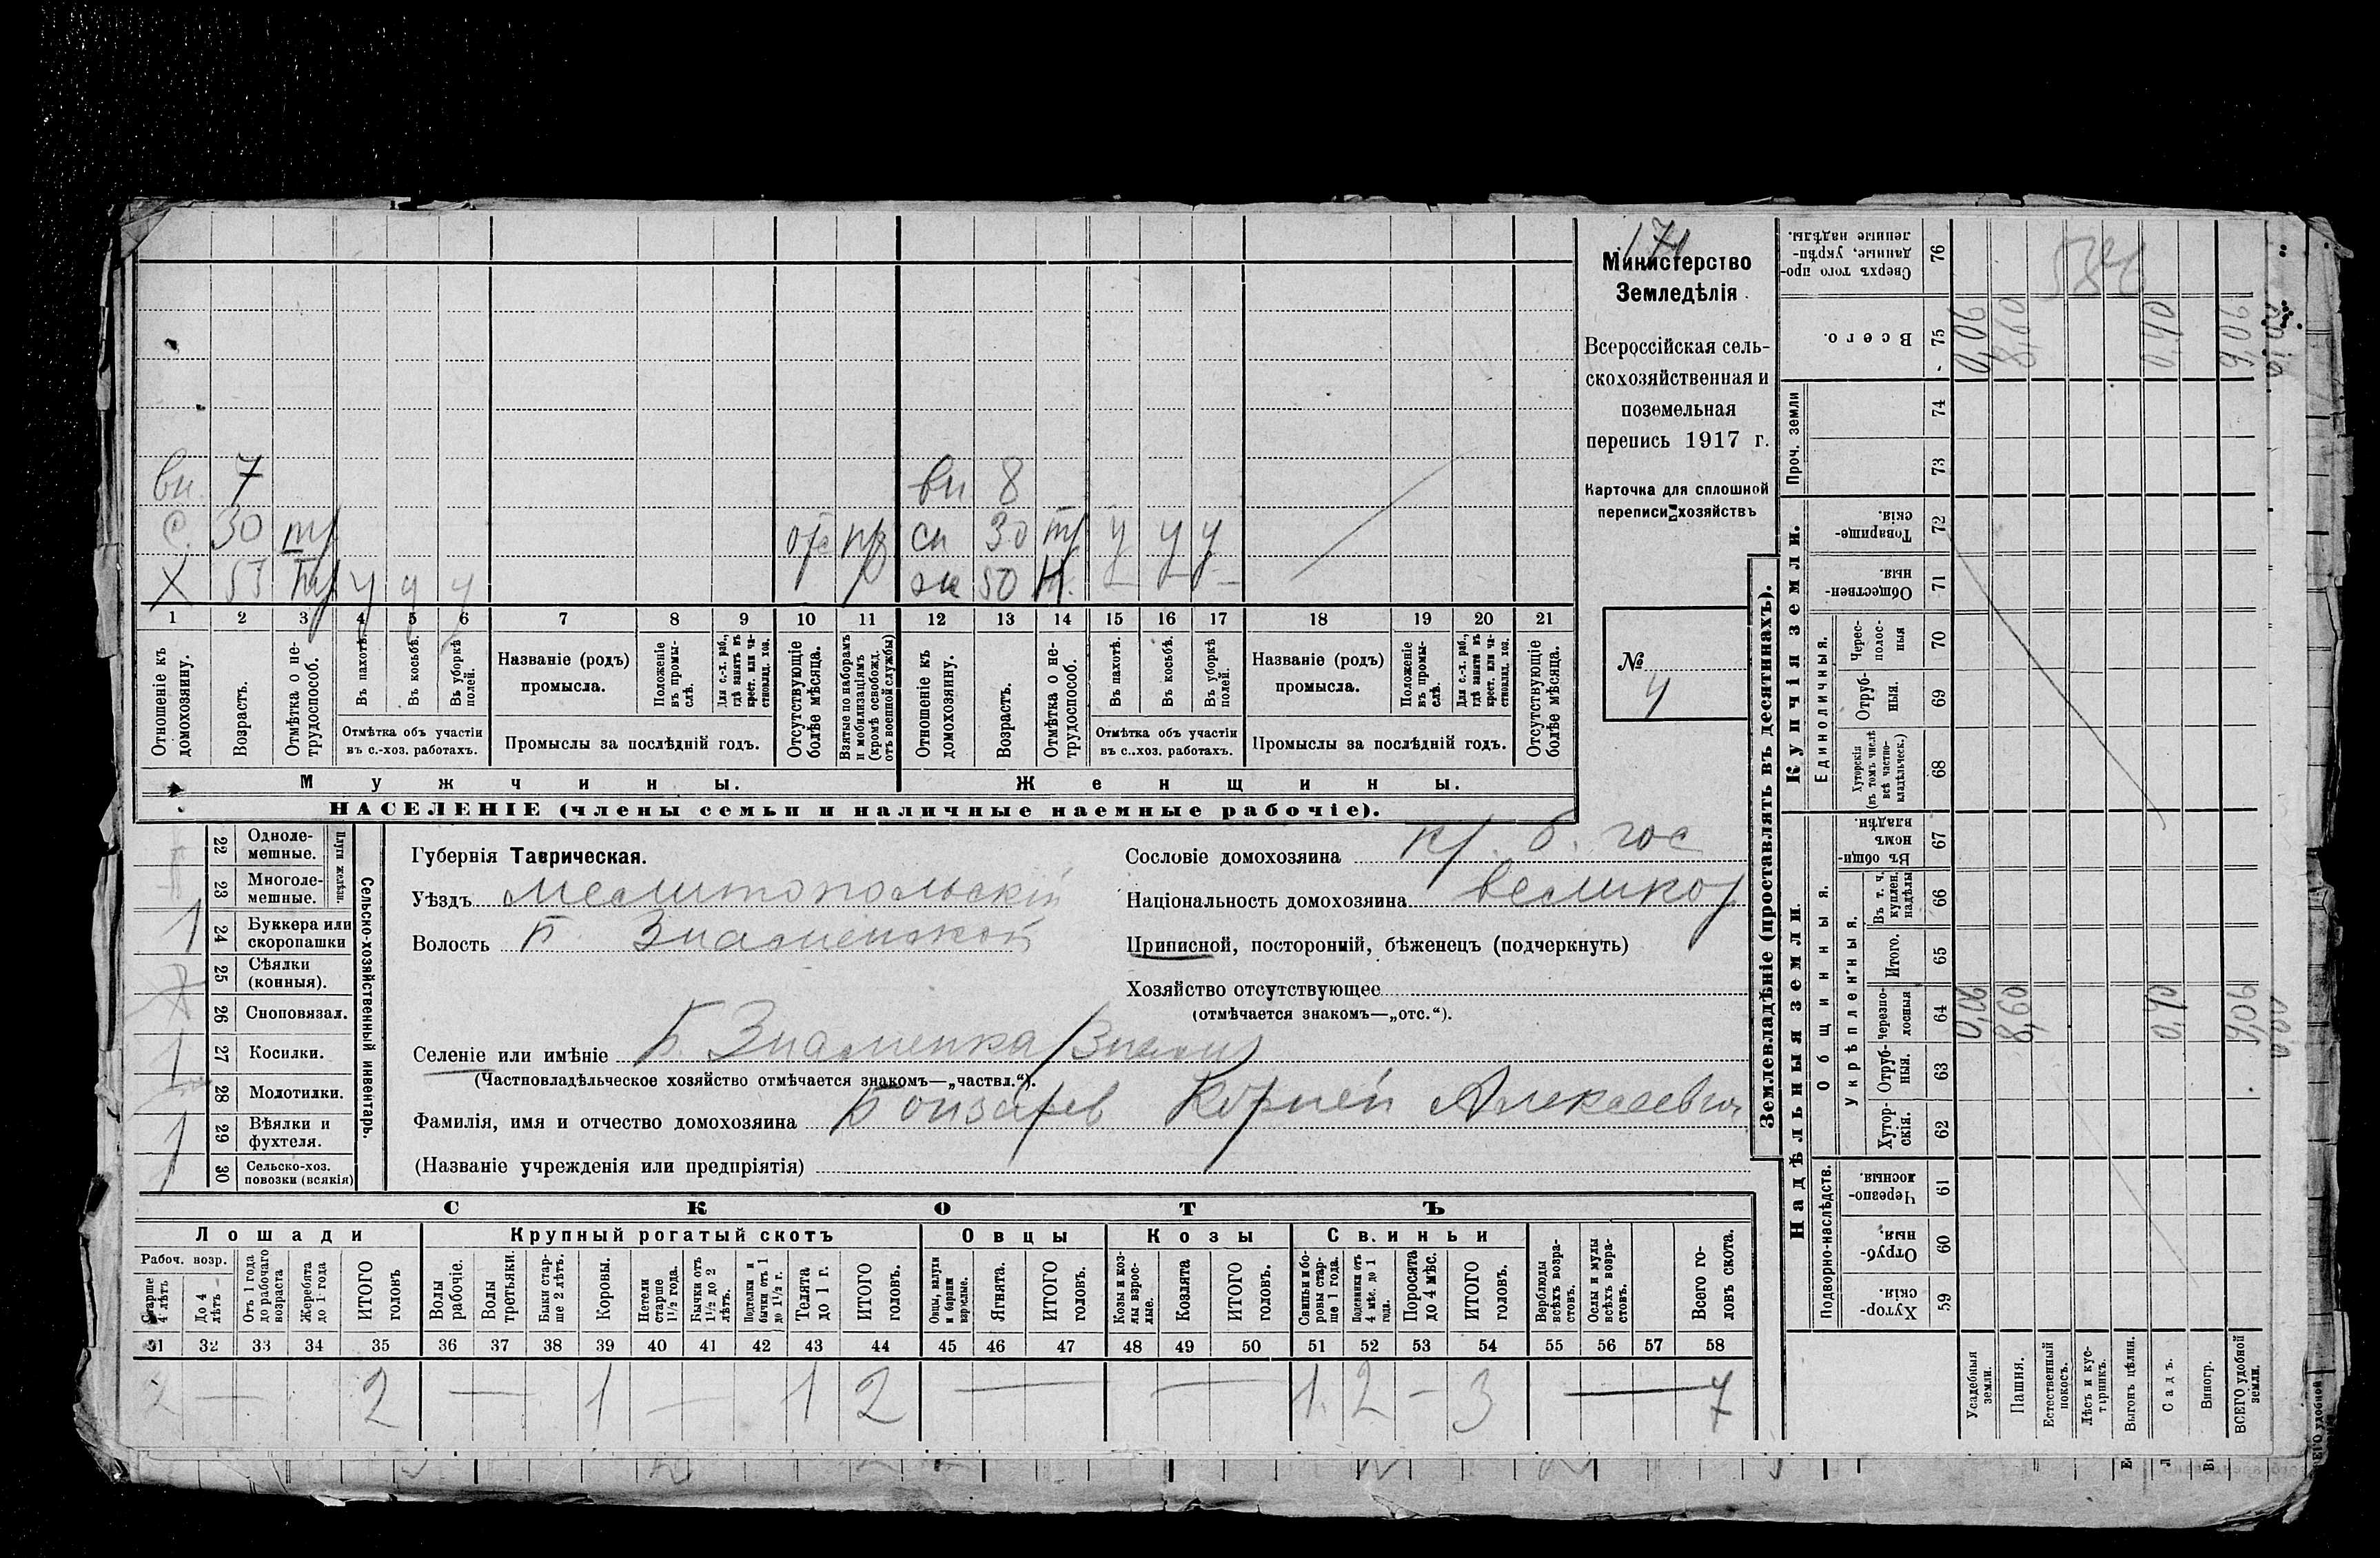 174
Министерство
Земледѣлія.
Всероссійская сель-
скохозяйственная и
поземельная
перепись 1917 г.
Карточка для сплошной
переписи хозяйствъ
№ 4
вн. 7 вн 8
с. 30 тр отс пр сн 30 тр у у у
Х 55 тр у у у жк 50 н. – – –
1 2 3 4 5 6 7 8 9 10 11 12 13 14 15 16 17 18 19 20 21
Отношеніе къ домохозяину.
Возрастъ.
Отмѣтка о не-трудоспособ.
Въ пахотѣ.
Въ косьбѣ.
Въ уборкѣ полей.
Отмѣтка объ участіи въ с.-хоз. работахъ.
Названіе (родъ) промысла.
Положеніе въ промы-слѣ.
Для с.-х. раб., гдѣ занятъ въ крест. или ча-стновлад. хоз.
Промыслы за послѣдній годъ.
Отсутствующіе болѣе мѣсяца.
Взятые по наборамъ и мобилизаціямъ (кромѣ освобожд. отъ военной службы)
Отношеніе къ домохозяину.
Возрастъ.
Отмѣтка о не-трудоспособ.
Въ пахотѣ.
Въ косьбѣ.
Въ уборкѣ полей.
Отмѣтка объ участіи въ с.-хоз. работахъ.
Названіе (родъ) промысла.
Положеніе въ промы-слѣ.
Для с.-х. раб., гдѣ занята въ крест. или ча-стновлад. хоз.
Промыслы за послѣдній годъ.
Отсутствующіе болѣе мѣсяца.
Мужчины. Женщины.
НАСЕЛЕНІЕ (члены семьи и наличные наемные рабочіе).
Сельско-хозяйственный инвентарь.
Плуги желѣзн.
22 Одноле-мешные.
23 Многоле-мешные.
1 24 Буккера или скоропашки
25 Сѣялки (конныя).
26 Сноповязал.
1 27 Косилки.
28 Молотилки.
1 29 Вѣялки и фухтеля.
30 Сельско-хоз. повозки (всякія)
Губернія Таврическая.
Уѣздъ Мелитопольскій
Волость Б. Знаменской
Селеніе или имѣніе Б. Знаменка
(Частновладѣльческое хозяйство отмѣчается знакомъ—„частвл.“).
Фамилія, имя и отчество домохозяина Бонзарев Корней Алексеевич
(Названіе учрежденія или предпріятія)
Сословіе домохозяина кр. б. гос
Національность домохозяина великор
Приписной, посторонній, бѣженецъ (подчеркнуть)
Хозяйство отсутствующее
(отмѣчается знакомъ—„отс.“).
СКОТЪ
Лошади Крупный рогатый скотъ Овцы Козы Свиньи
Рабоч. возр.
Старше 4 лѣтъ
До 4 лѣтъ
Отъ 1 года до рабочаго возраста
Жеребята до 1 года
ИТОГО головъ
Волы рабочіе.
Волы третьяки.
Быки стар-ше 2 лѣтъ.
Коровы.
Нетели старше 1 1/2 года.
Бычки отъ 1 1/2 до 2 лѣтъ.
Подтелки и бычки отъ 1 до 1 1/2 г.
Телята до 1 г.
ИТОГО головъ.
Овцы, валухи и бараны взрослые.
Ягнята.
ИТОГО головъ.
Козы и коз-лы взрос-лые.
Козлята
ИТОГО головъ.
Свиньи и бо-ровы стар-ше 1 года.
Подсвинки отъ 4 мѣс. до 1 года.
Поросята до 4 мѣс.
ИТОГО головъ.
Верблюды всѣхъ возра-стовъ.
Ослы и мулы всѣхъ возра-стовъ.
Всего го-ловъ скота.
31 32 33 34 35 36 37 38 39 40 41 42 43 44 45 46 47 48 49 50 51 52 53 54 55 56 57 58
2 — 2 — 1 — 1 2 — — 1. 2 – 3 — 7
Землевладѣніе (проставлять въ десятинахъ).
Надѣльныя земли. Купчія земли. Проч. земли
Подворно-наслѣдств.
Общинныя.
Укрѣпленныя.
Единоличныя.
Хутор-скія. 59
Отруб-ныя. 60
Черезпо-лосныя. 61
Хутор-скія. 62
Отруб-ныя. 63
Черезпо-лосныя 64
Итого. 65
Въ т. ч. куплен. надѣлы 66
Въ общи-номъ владѣн. 67
Хуторскія (въ томъ числѣ всѣ частно-владѣльческ.) 68
Отруб-ныя. 69
Черес-полос-ныя 70
Обществен-ныя. 71
Товарище-скія. 72
73
74
Всего. 75
Сверхъ того про-данные, укрѣп-ленные надѣлы. 76
Усадебныя земли. 0,06 0,06
Пашня. 8,60 8,60
Естественный покосъ.
Лѣсъ и кус-тарникъ.
Выгонъ цѣлин.
Садъ. 0,40 0,40
Виногр.
ВСЕГО удобной земли. 9,06 9,06